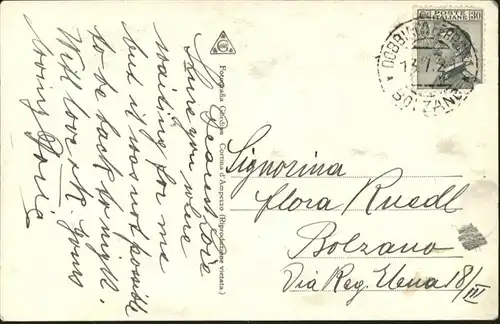 My Dearest Flora
I am sure you where
waiting for me
but it was not possible
to be back to night.
Will love ok. yours
loving Doria
Fotografia Ghedina - Cortina d'Ampezzo (Riproduzione vietata.)
POSTE ITALIANE 30
DOBBIACO
BOLZANO
Signorina
Flora Ruedl
Bolzano
Via Reg. Elena 18/III